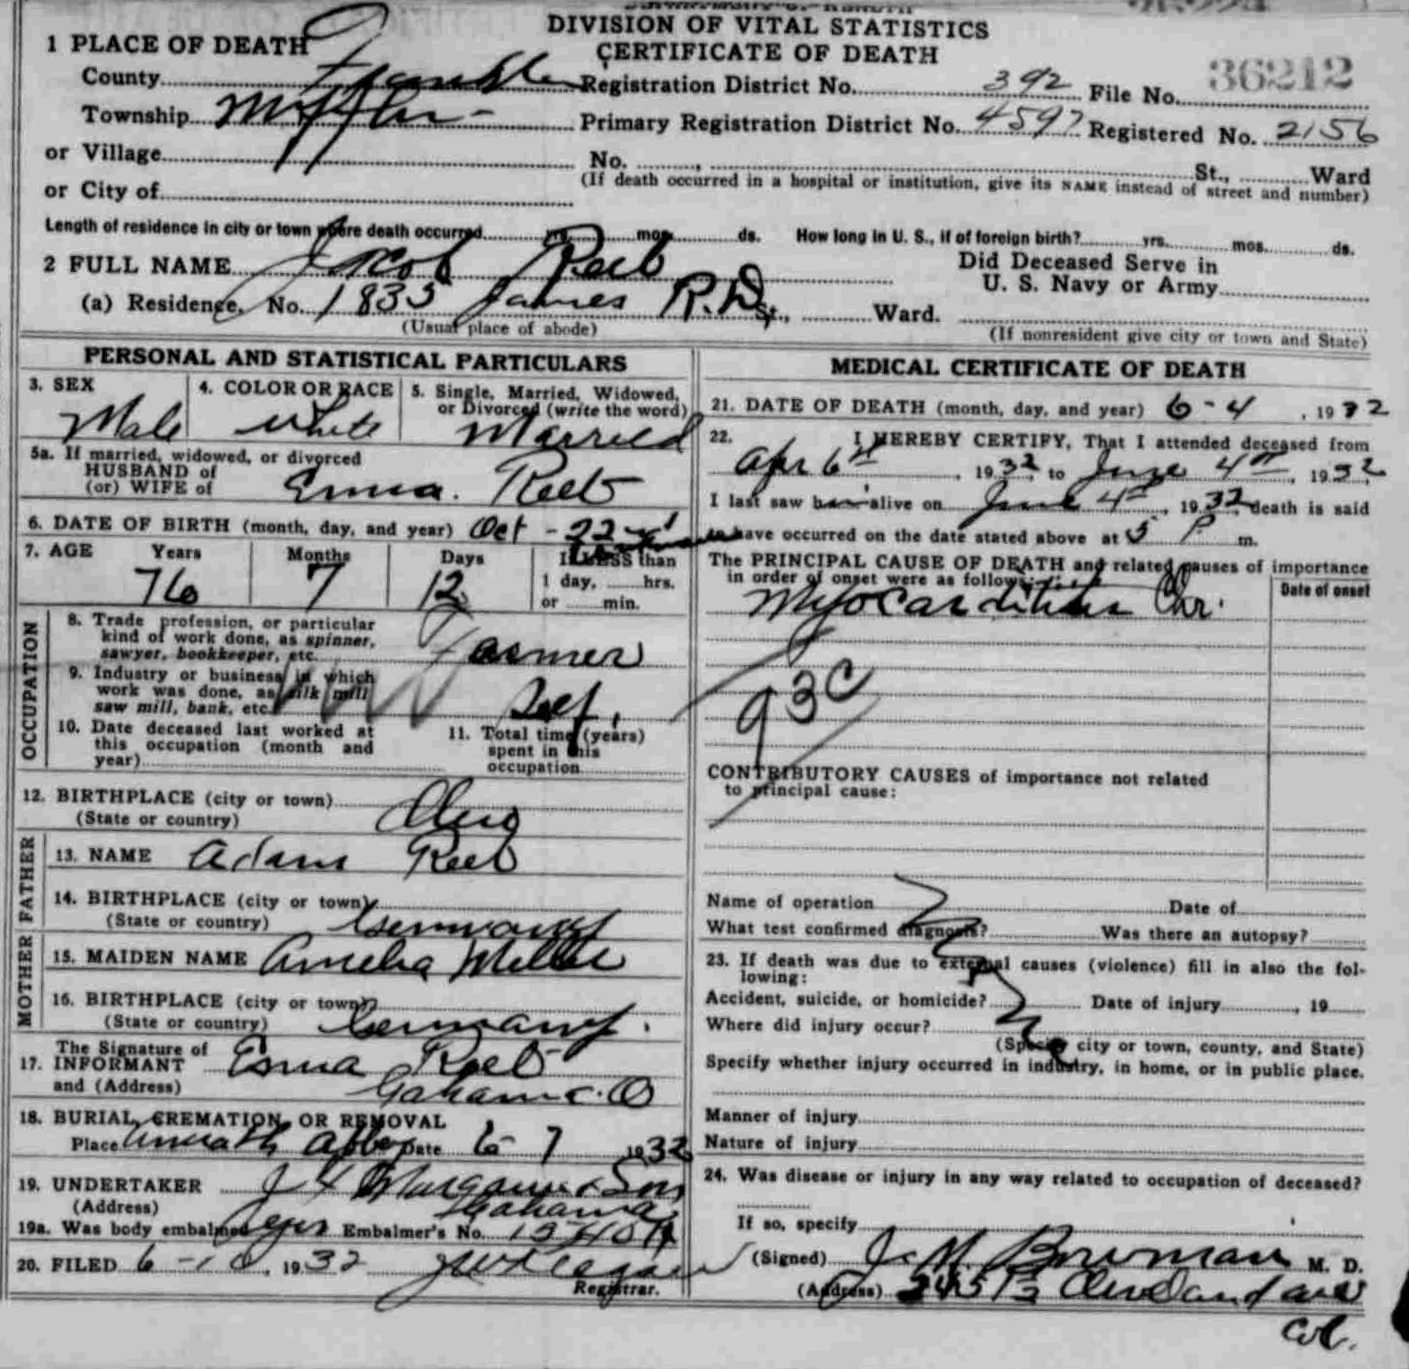 DIVISION OF VITAL STATISTICS
CERTIFICATE OF DEATH
1 PLACE OF DEATH
County Franklin Registration District No. 392 File No. 36212
Township Mifflin Primary Registration District No. 4597 Registered No. 2156
or Village No. , St., Ward
(If death occurred in a hospital or institution, give its NAME instead of street and number)
or City of
Length of residence in city or town where death occurred yrs. mos. ds. How long in U. S., if of foreign birth? yrs. mos. ds.
2 FULL NAME Jacob Reeb
Did Deceased Serve in
U. S. Navy or Army
(a) Residence, No. 1835 James R.D. St., Ward.
(Usual place of abode) (If nonresident give city or town and State)
PERSONAL AND STATISTICAL PARTICULARS
3. SEX 4. COLOR OR RACE 5. Single, Married, Widowed,
or Divorced (write the word)
Male White Married
5a. If married, widowed, or divorced
HUSBAND of
(or) WIFE of Emma. Reeb
6. DATE OF BIRTH (month, day, and year) Oct - 22
7. AGE Years Months Days If LESS than
1 day, hrs.
or min.
76 7 12
OCCUPATION
8. Trade profession, or particular
kind of work done, as spinner,
sawyer, bookkeeper, etc. Farmer
9. Industry or business in which
work was done, as silk mill
saw mill, bank, etc. Self.
10. Date deceased last worked at
this occupation (month and
year)
11. Total time (years)
spent in this
occupation
12. BIRTHPLACE (city or town)
(State or country) Ohio
FATHER
13. NAME Adam Reeb
14. BIRTHPLACE (city or town)
(State or country) Germany
MOTHER
15. MAIDEN NAME Amelia Miller
16. BIRTHPLACE (city or town)
(State or country) Germany.
17. The Signature of
INFORMANT Emma Reeb
and (Address) Gahanna. O
18. BURIAL, CREMATION, OR REMOVAL
Place Abbey Date 6-7 1932
19. UNDERTAKER & Son
(Address) Gahanna
19a. Was body embalmed yes Embalmer's No.
20. FILED 6-10, 1932
Registrar.
MEDICAL CERTIFICATE OF DEATH
21. DATE OF DEATH (month, day, and year) 6-4, 1932
22. I HEREBY CERTIFY, That I attended deceased from
Apr 6th, 1932 to June 4th, 1932
I last saw him alive on June 4th, 1932 death is said
to have occurred on the date stated above at 5 P m.
The PRINCIPAL CAUSE OF DEATH and related causes of importance
in order of onset were as follows: Date of onset
Myocarditis Chr.
93C
CONTRIBUTORY CAUSES of importance not related
to principal cause:
Name of operation Date of
What test confirmed diagnosis? Was there an autopsy?
23. If death was due to external causes (violence) fill in also the fol-
lowing:
Accident, suicide, or homicide? Date of injury , 19
Where did injury occur?
(Specify city or town, county, and State)
Specify whether injury occurred in industry, in home, or in public place.
Manner of injury
Nature of injury
24. Was disease or injury in any way related to occupation of deceased?
If so, specify
(Signed) J. M. Bowman M. D.
(Address) Cleveland ave
Col.